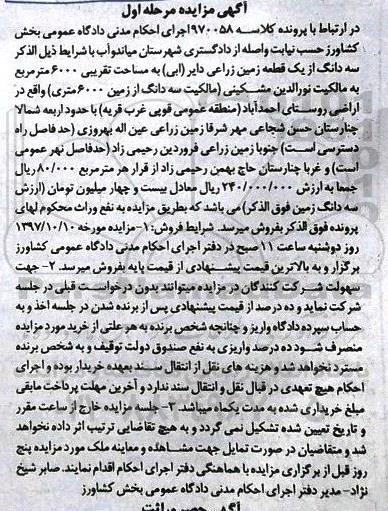 آگهی مزایده مرحله اول
در ارتباط با پرونده کلاسه ۹۷۰۰۵۸ اجرای احکام مدنی دادگاه عمومی بخش
کشاورز حسب نیابت واصله از دادگستری شهرستان میاندوآب با شرایط ذیل الذکر
سه دانگ از یک قطعه زمین زراعی دایر (آبی) به مساحت تقریبی ۶۰۰۰ مترمربع
به مالکیت نورالدین مشکینی (مالکیت سه دانگ از زمین ۶۰۰۰ متری) واقع در
اراضی روستای احمدآباد (منطقه عمومی قوپی غرب قریه) با حدود اربعه شمالا
چنارستان حسن شجاعی مهر شرقا زمین زراعی عین اله بهروزی (حد فاصل راه
دسترسی است) جنوبا زمین زراعی فروردین رحیمی زاد (حدفاصل نهر عمومی
است) و غربا چنارستان حاج بهمن رحیمی زاد از قرار هر مترمربع ۸۰/۰۰۰ ریال
جمعا به ارزش ۲۴۰/۰۰۰/۰۰۰ ریال معادل بیست و چهار میلیون تومان (ارزش
سه دانگ زمین فوق الذکر) می باشد که بطریق مزایده به نفع وراث محکوم لهای
پرونده فوق الذکر بفروش میرسد. شرایط فروش: ۱- مزایده مورخه ۱۳۹۷/۱۰/۱۰
روز دوشنبه ساعت ۱۱ صبح در دفتر اجرای احکام مدنی دادگاه عمومی کشاورز
برگزار و به بالاترین قیمت پیشنهادی از قیمت پایه بفروش میرسد. ۲- جهت
سهولت شرکت کنندگان در مزایده میتوانند بدون درخواست قبلی در جلسه
شرکت نماید و ده درصد از قیمت پیشنهادی پس از برنده شدن در جلسه اخذ و به
حساب سپرده دادگاه واریز و چنانچه شخص برنده به هر علتی از خرید مورد مزایده
منصرف شود ده درصد واریزی به نفع صندوق دولت توقیف و به شخص برنده
مسترد نخواهد شد و هزینه های نقل از انتقال سند بعهده خریدار بوده و اجرای
احکام هیچ تعهدی در قبال نقل و انتقال سند ندارد و آخرین مهلت پرداخت مابقی
مبلغ خریداری شده به مدت یکماه میباشد. ۳- جلسه مزایده خارج از ساعت مقرر
و تاریخ تعیین شده تشکیل نمی گردد و به هیچ تقاضایی ترتیب اثر داده نخواهد
شد و متقاضیان در صورت تمایل جهت مشاهده و معاینه ملک مورد مزایده پنج
روز قبل از برگزاری مزایده با هماهنگی دفتر اجرای احکام اقدام نمایند. صابر شیخ
نژاد- مدیر دفتر اجرای احکام مدنی دادگاه عمومی بخش کشاورز
آگهی حصر وراثت